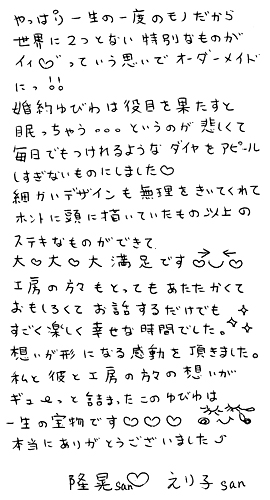 やっぱり一生の一度のモノだから
世界に2つとない特別なものが
イィ♡っていう思いでオーダーメイド
にっ!!
婚約ゆびわは役目を果たすと
眠っちゃう。。。というのが悲しくて
毎日でもつけれるようなダイヤをアピール
しすぎないものにしました♡
細かいデザインも無理をきいてくれて
ホントに頭に描いていたもの以上の
ステキなものができて
大♡大♡大満足です♡‿♡
工房の方々もとってもあたたかくて
おもしろくてお話するだけでも
すごく楽しく幸せな時間でした。
想いが形になる感動を頂きました。
私と彼と工房の方々の想いが
ギューっと詰まったこのゆびわは
一生の宝物です♡♡♡
本当にありがとうございました♪
隆晃san♡ えり子san